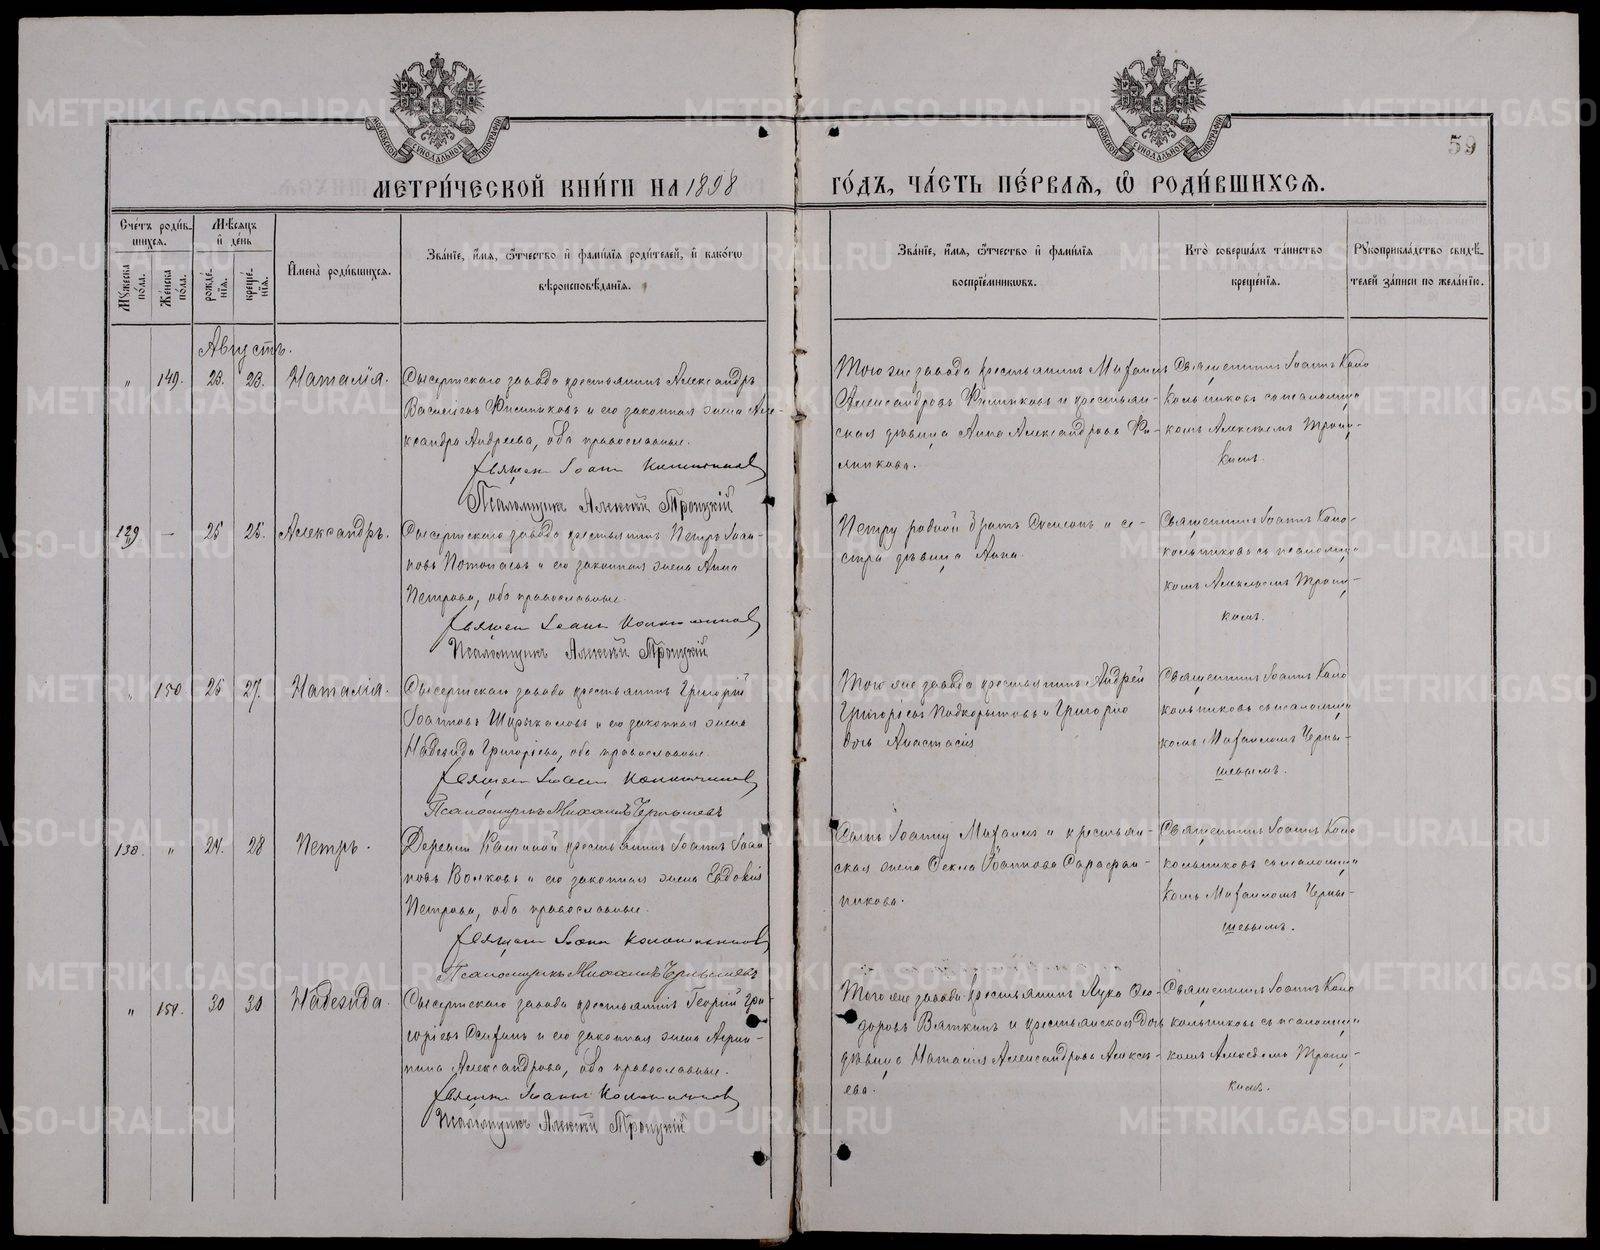 МЕТРИ́ЧЕСКОЙ КНИ́ГИ НА 1898 ГО́ДЪ, ЧА́СТЬ ПЕ́РВАЯ, Ѽ РОДИ́ВШИХСЯ.
59
МОСКОВСКОЙ СѴНОДАЛЬНОЙ ТИПОГРАФІИ
МОСКОВСКОЙ СѴНОДАЛЬНОЙ ТИПОГРАФІИ
Сче́тъ роди́вшихся.
Мѣ́сяцъ и де́нь
Мꙋжеска по́ла.
Же́нска по́ла.
рожде́нїя.
креще́нїя.
И҆мена̀ роди́вшихся.
Зва́нїе, и҆́мя, ѻ҆́тчество и҆ фами́лїя роди́телей, и҆ како́гѡ
вѣроисповѣ́данїя.
Зва́нїе, и҆́мя, ѻ҆́тчество и҆ фами́лїя
воспрїе́мникѡвъ.
Кто̀ соверша́лъ та́инство
креще́нїя.
Рꙋкоприкла́дство свидѣ́телей за́писи по жела́нїю.
Августъ.
" 149. 23. 23. Наталія.
Сысертскаго завода крестьянинъ Александръ
Васильевъ и его законная жена Александра Андреева, оба православные.
Священ Іоаннъ
Псаломщикъ Алексій Троицкій
Того же завода крестьянинъ Михаилъ
Александровъ и крестьянская дѣвица Анна Александрова
Священникъ Іоаннъ Колокольниковъ съ псаломщикомъ Алексѣемъ Троицкимъ.
129 — 25 25. Александръ.
Сысертскаго завода крестьянинъ Петръ Іоанновъ и его законная жена Анна
Петрова, оба православные.
Священ Іоанн Колокольников
Псаломщикъ Алексій Троицкій
Петру родной братъ и сестра дѣвица Анна.
Священникъ Іоаннъ Колокольниковъ съ псаломщикомъ Алексѣемъ Троицкимъ.
150 26 27. Наталія.
Сысертскаго завода крестьянинъ Григорій
Іоанновъ и его законная жена
Надежда Григоріева, оба православные.
Священ Іоанн Колокольников
Псаломщикъ Михаилъ Чернышевъ
Того же завода крестьянинъ Андрей
Григоріевъ Подкорытовъ и Григорію
дочь Анастасія
Священникъ Іоаннъ Колокольниковъ съ псаломщикомъ Михаиломъ Чернышевымъ.
130. " 27. 28 Петръ.
Деревни крестьянинъ Іоаннъ Іоанновъ Волковъ и его законная жена Евдокія
Петрова, оба православные.
Священ Іоанн Колокольников
Псаломщикъ Михаилъ Чернышевъ
Сынъ Іоанну Михаилъ и крестьянская жена Ѳекла Іоаннова Сарафанникова.
Священникъ Іоаннъ Колокольниковъ съ псаломщикомъ Михаиломъ Чернышевымъ.
" 151. 30 30 Надежда.
Сысертскаго завода крестьянинъ Георгій Григоріевъ и его законная жена Агрипина Александрова, оба православные.
Священн Іоанн Колокольников
Псаломщикъ Алексій Троицкій
Того же завода крестьянинъ Лука Ѳедоровъ Вяткинъ и крестьянская дочь
дѣвица Наталія Александрова Алексѣева.
Священникъ Іоаннъ Колокольниковъ съ псаломщикомъ Алексѣемъ Троицкимъ.
METRIKI.GASO-URAL.RU